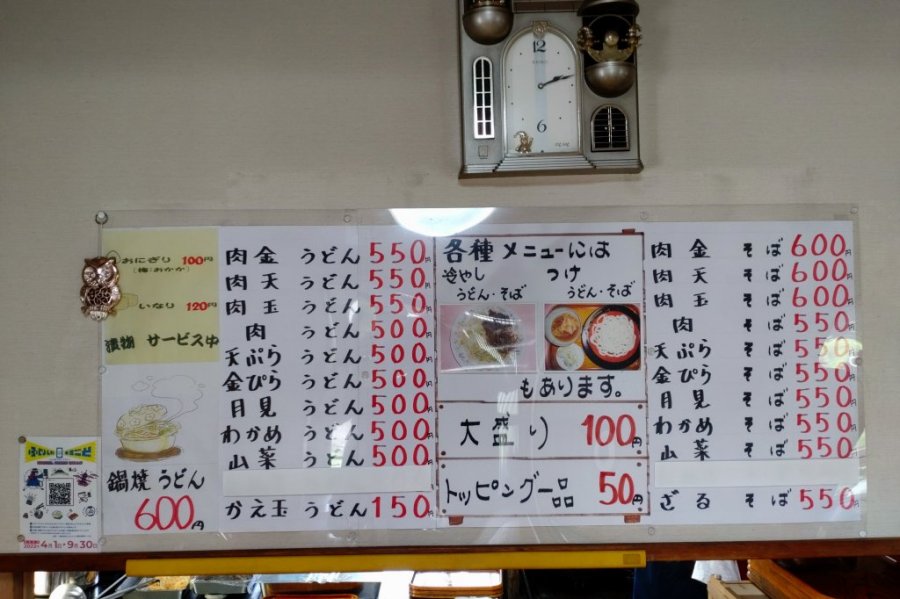 12
SEIKO
6
おにぎり 100円
(梅・おかか)
いなり 120円
漬物 サービス中
鍋焼うどん
600円
肉金うどん 550円
肉天うどん 550円
肉玉うどん 550円
肉うどん 500円
天ぷらうどん 500円
金ぴらうどん 500円
月見うどん 500円
わかめうどん 500円
山菜うどん 500円
かえ玉うどん 150円
各種メニューには
冷やし つけ
うどん・そば うどん・そば
もあります。
大盛り 100円
トッピング一品 50円
肉金そば 600円
肉天そば 600円
肉玉そば 600円
肉そば 550円
天ぷらそば 550円
金ぴらそば 550円
月見そば 550円
わかめそば 550円
山菜そば 550円
ざるそば 550円
2022年4月1日▶9月30日